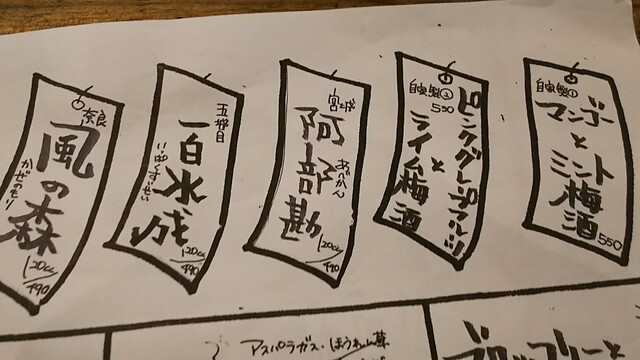 自家製①
マンゴー
と
ミント
梅酒
550
自家製②
550
ピンクグレープフルーツ
と
ライム梅酒
宮城
阿部勘
あべかん
120cc/490
五城目
一白水成
いっぱくすいせい
120cc/490
奈良
風の森
かぜのもり
120cc/490
アスパラガス・ほうれん草
ブロッコリーと